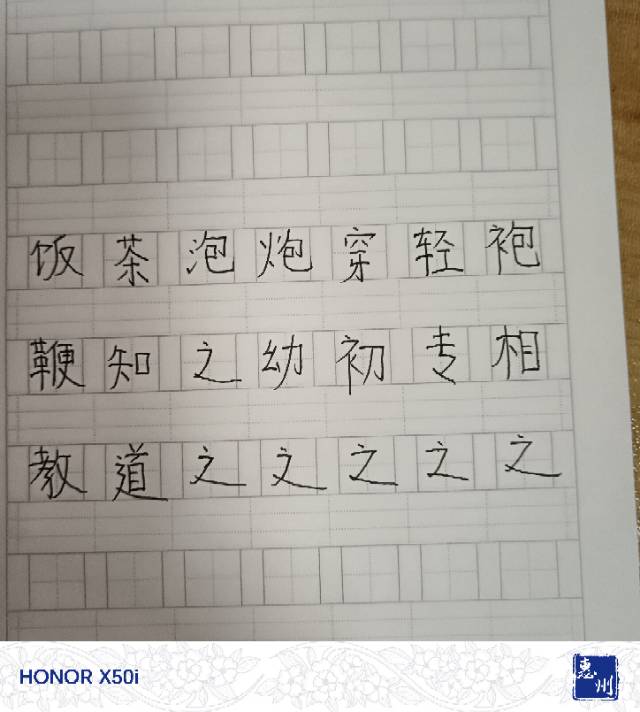 饭茶泡炮穿轻袍
鞭知之幼初专相
教道之之之之之
HONOR X50i
惠州